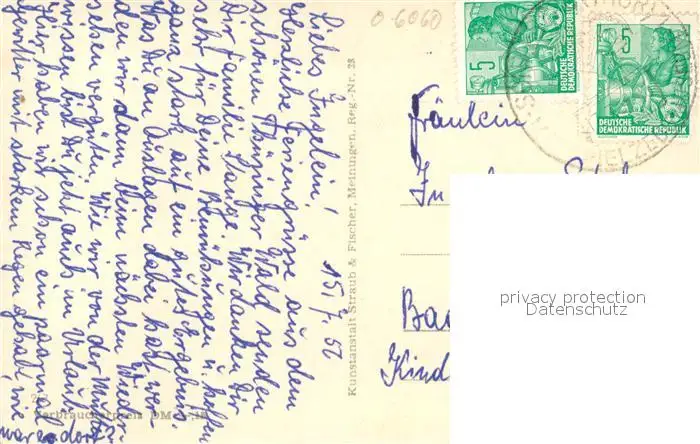 15.7.57
Liebes Ingelein!
Herzliche Feriengrüsse aus dem
schönen Thüringer Wald senden
Dir Familie Lange. Wir danken Dir
sehr für Deine Bemühungen u. hoffen
ganz stark auf ein gutes Ergebnis.
Was Du an Auslagen dabei hast, wer-
den wir dann beim nächsten Wieder-
sehen vergüten. Wie wir von der Mutti
wissen bist Du jetzt auch im Urlaub.
Hier haben wir schon ein paarmal
Gewitter mit starken Regen gehabt, wie
war es dort?
Verbraucherpreis DM
Kunstanstalt Straub & Fischer, Meiningen, Reg.-Nr. 28
0-6060
5
DEUTSCHE
DEMOKRATISCHE REPUBLIK
5
DEUTSCHE
DEMOKRATISCHE REPUBLIK
Fräulein
In
Bad
Kind
privacy protection
Datenschutz